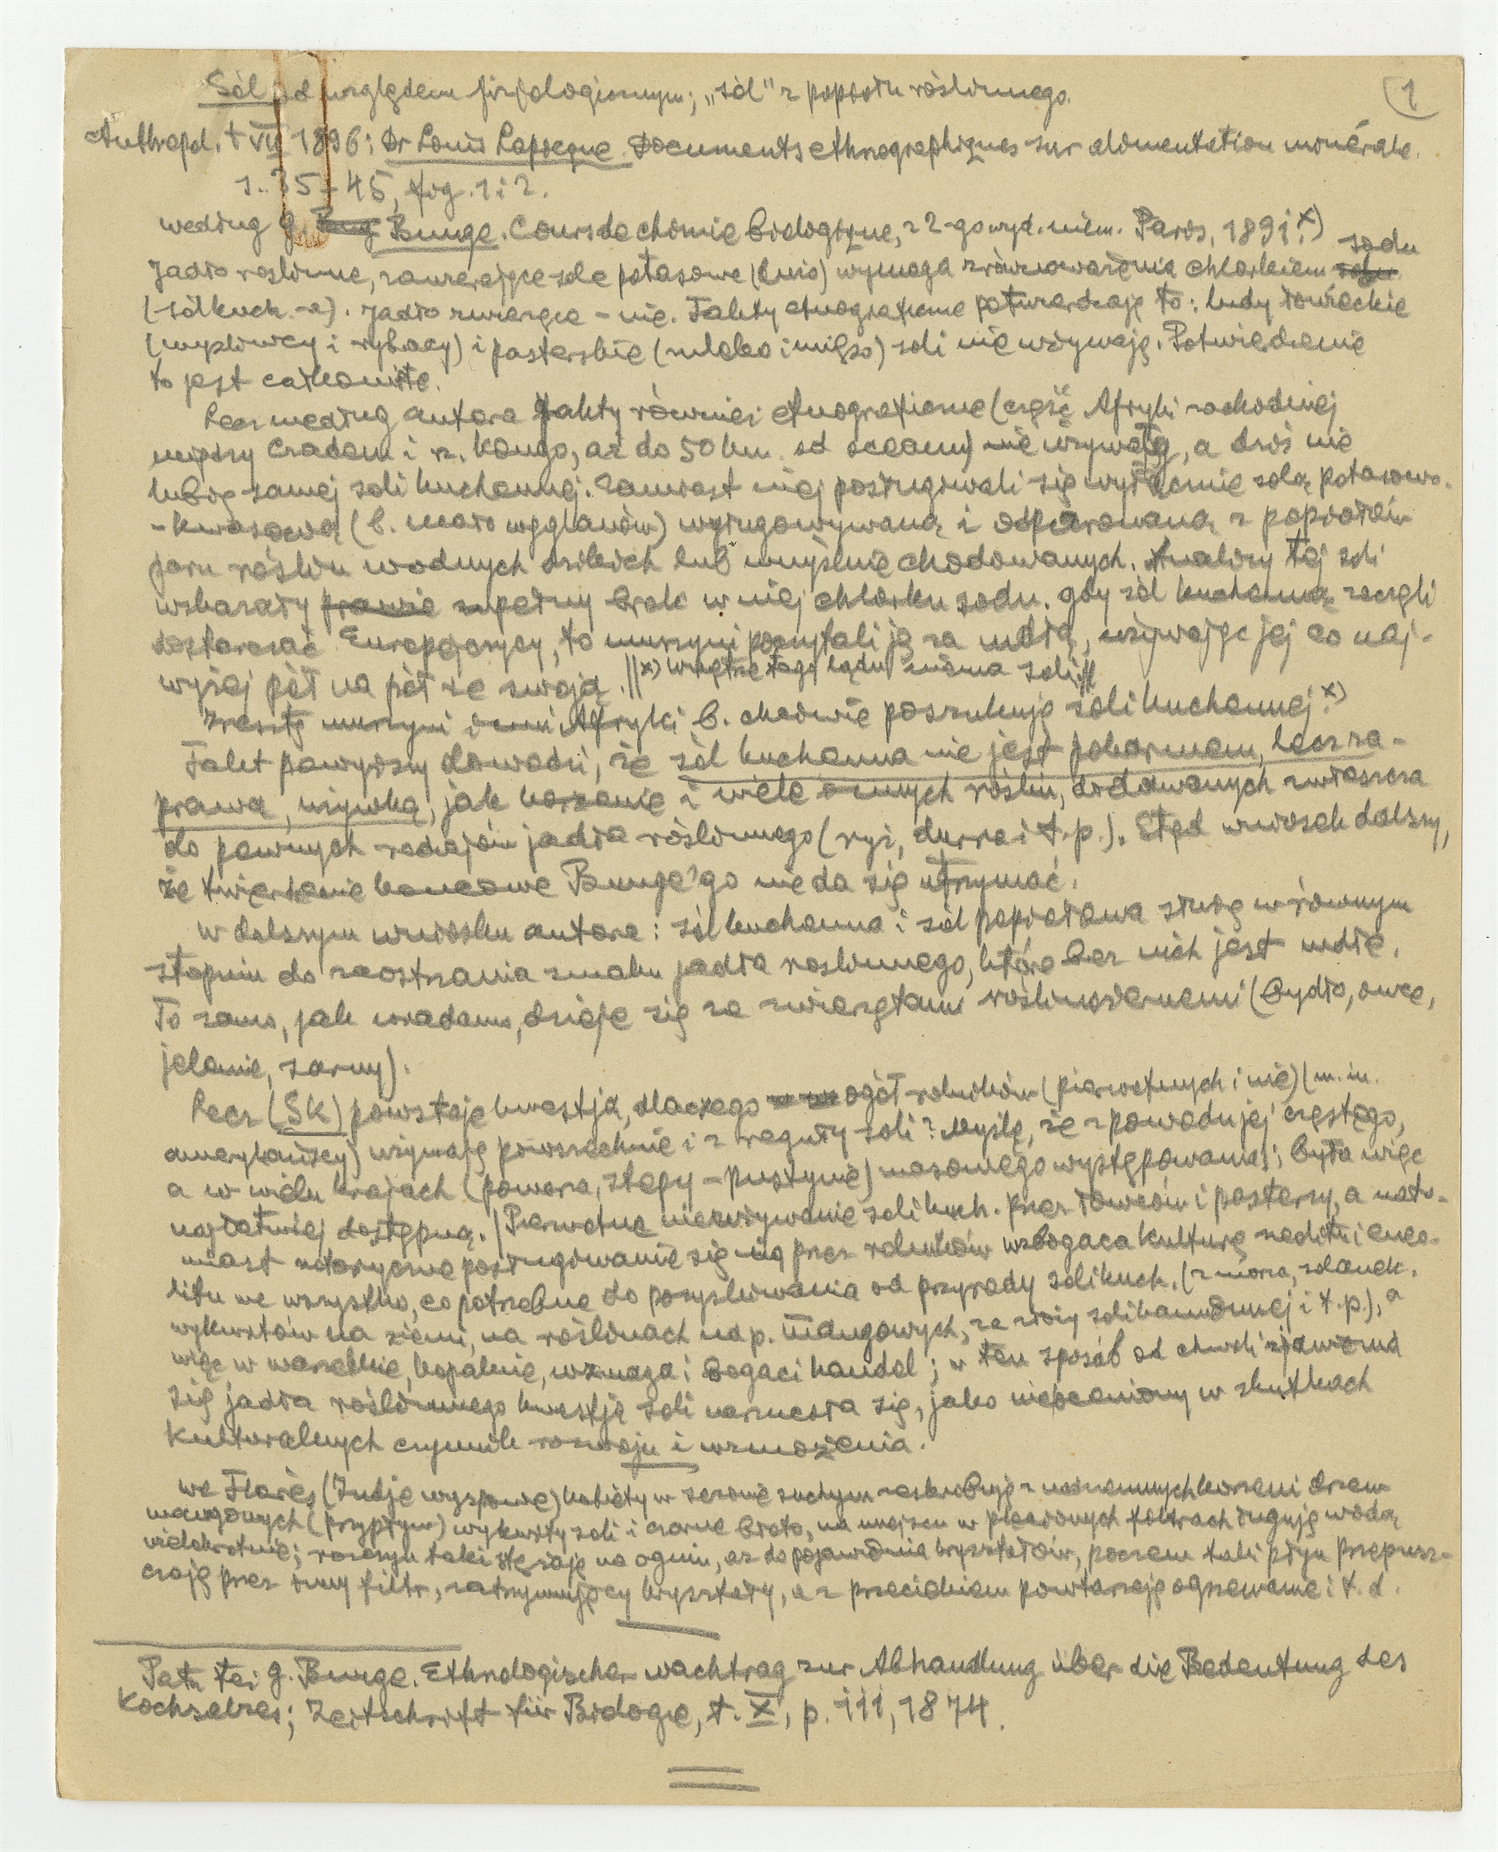 Sól pod względem fizjologicznym; „sól" z popiołu roślinnego.
1
Anthropol. t VII 1896: Dr Louis Lapicque. Documents ethnographiques sur alimentation minérale.
s. 35-45, fig. 1 i 2.
według G. Bung Bunge. Cours de chimie biologique, z 2-go wyd. niem. Paris, 1891.x)
Jadło roślinne, zawierające sole potasowe (dużo) wymaga zrównoważenia chlorkiem sodu
(-sól kuch.-a). Jadło zwierzęce - nie. Fakty etnograficzne potwierdzają to: ludy łowieckie
(myśliwcy i rybacy) i pasterskie (mleko i mięso) soli nie używają. Potwierdzenie
to jest całkowite.
Lecz według autora fakty również etnograficzne (część Afryki zachodniej
między Czadem i rz. Kongo, aż do 50 km. od oceanu) nie używały, a dziś nie
lubią samej soli kuchennej. Zamiast niej posługiwali się wyłącznie solą potasowo-
-kwasową (b. mało węglanów) wyługowywaną i odparowaną z popiołów
paru roślin wodnych dzikich lub umyślnie chodowanych. Analizy tej soli
wskazały prawie zupełny brak w niej chlorku sodu. Gdy sól kuchenną zaczęli
dostarczać Europejczycy, to murzyni poczytali ją za mdłą, używając jej co naj-
wyżej pół na pół ze swoją. || x) Wnętrze tego lądu niema soli. ||
Zresztą murzyni inni Afryki b. chciwie poszukują soli kuchennej.x)
Fakt powyższy dowodzi, że sól kuchenna nie jest pokarmem, lecz za-
prawą, używką, jak korzenie i wiele innych roślin, dodawanych zwłaszcza
do pewnych rodzajów jadła roślinnego (ryż, durra i t.p.). Stąd wniosek dalszy,
że twierdzenie końcowe Bunge'go nie da się utrzymać.
W dalszym wniosku autora: sól kuchenna i sól popiołowa służą w równym
stopniu do zaostrzania smaku jadła roślinnego, które bez nich jest mdłe.
To samo, jak wiadomo, dzieje się ze zwierzętami roślinożernemi (bydło, owce,
jelenie, sarny).
Lecz (SK) powstaje kwestja, dlaczego ogół rolników (pierwotnych i nie) (m. in.
amerykańscy) używają powszechnie i z reguły soli? Myślę, że z powodu jej częstego,
a w wielu krajach (morza, stepy - pustynie) masowego występowania; była więc
najłatwiej dostępną. | Pierwotne nieużywanie soli kuch. przez łowców i pasterzy, a nato-
miast notoryczne posługiwanie się nią przez rolników wzbogaca kulturę neolitu i eneo-
litu we wszystko, co potrzebne do pozyskiwania od przyrody soli kuch. (z morza, solanek,
wykwitów na ziemi, na roślinach nad p. mangowych, ze złoży soli kamiennej i t.p.), a
więc w warzelnie, kopalnie, wzmaga i bogaci handel; w ten sposób od chwili zjawienia
się jadła roślinnego kwestja soli narzuciła się, jako nieoceniony w skutkach
kulturalnych czynnik rozwoju i wzmożenia.
We Florès (Indje wyspowe) kobiety w sezonie suchym zeskrobują z nadziemnych korzeni drzew
mangowych (przypływ) wykwity soli i czarne błoto, na miejscu w plecionych filtrach ługują wodą
wielokrotnie; rozczyn taki stężają na ogniu, aż do pojawienia kryształów, poczem taki płyn przepusz-
czają przez inny filtr, zatrzymujący kryształy, a z przeciekiem powtarzają ogrzewanie i t. d.
Patrz też G. Bunge. Ethnologischer Nachtrag zur Abhandlung über die Bedeutung des
Kochsalzes; Zeitschrift für Biologie, t. X, p. 111, 1874.